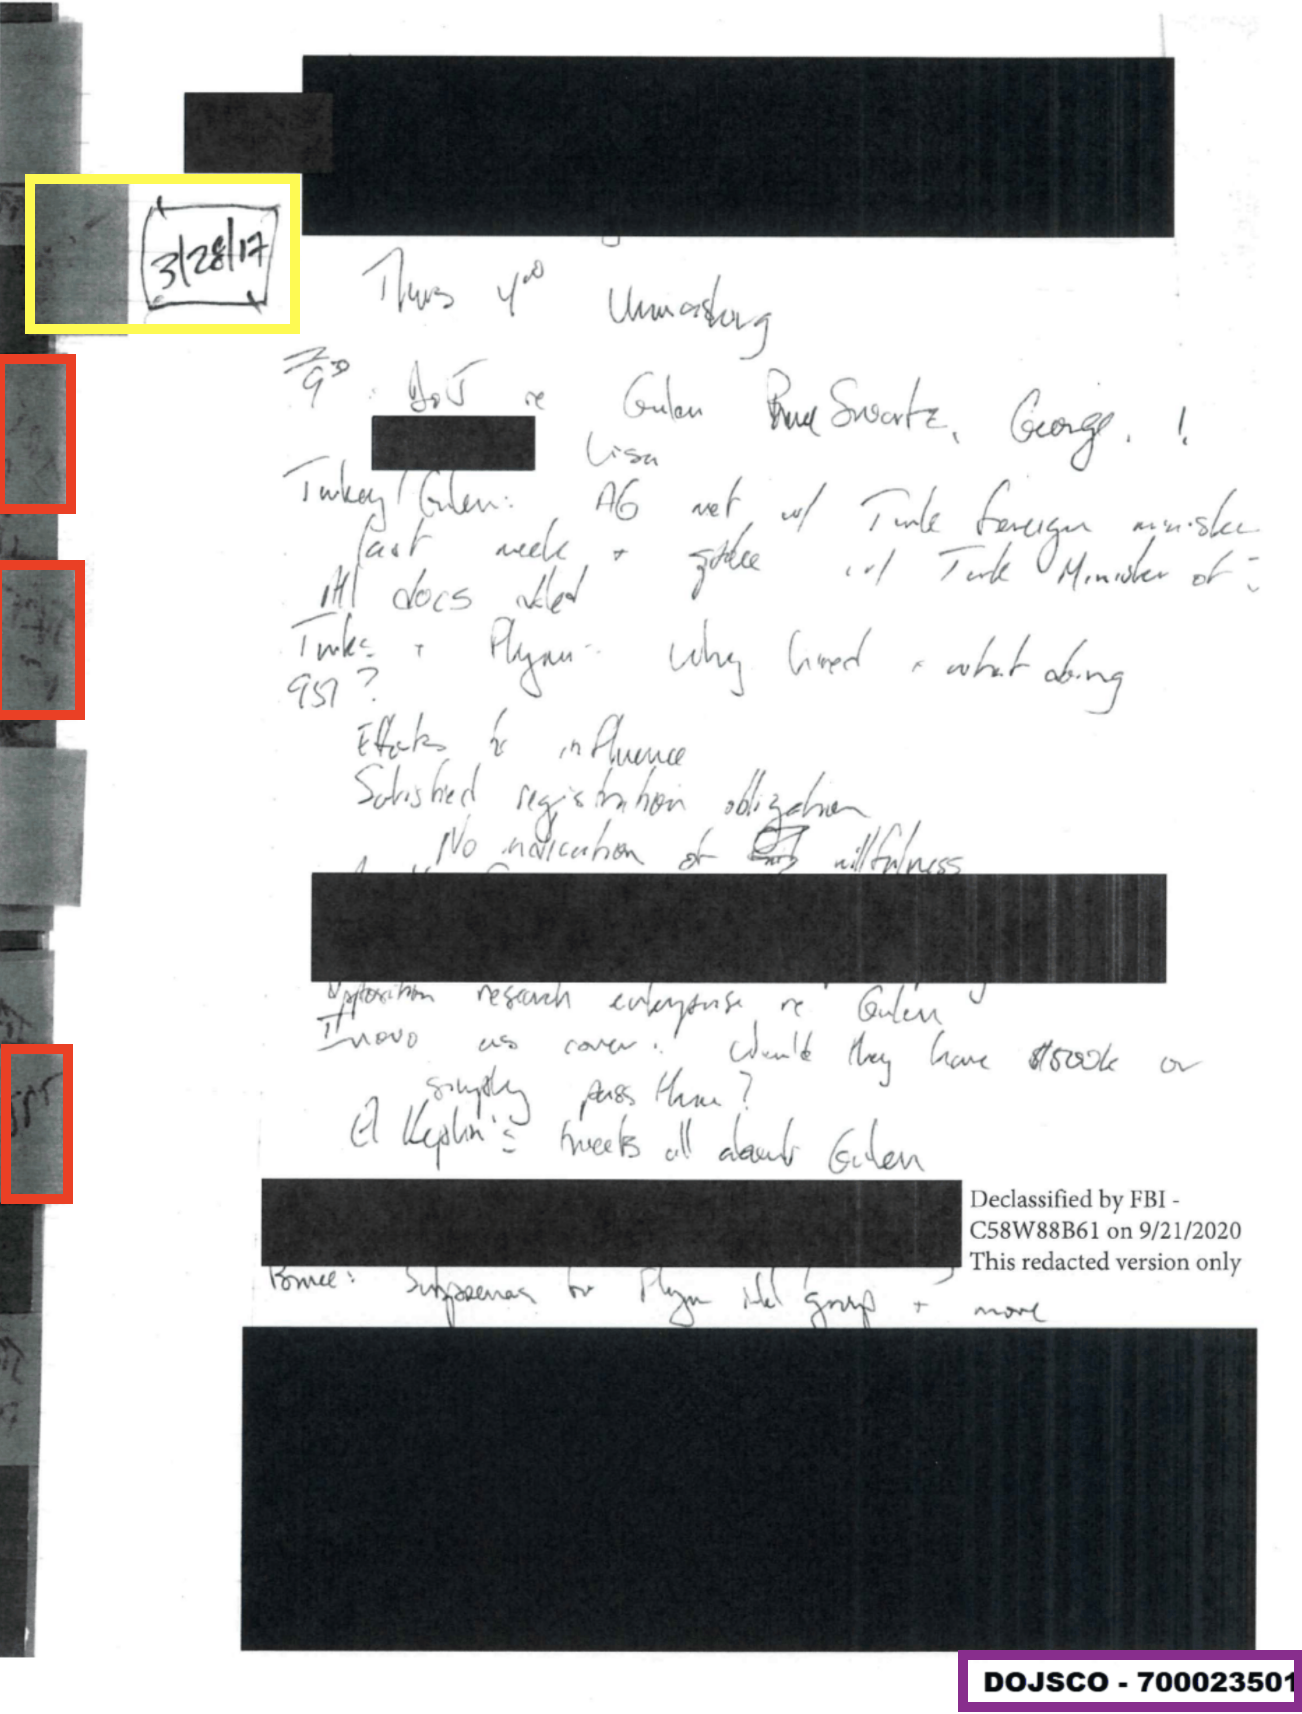 3/28/17
Thurs 4:00 Unmasking
9:30: DoJ re Gulen Bruce Swartz, George, !
Lisa
Turkey/Gulen: AG met w/ Turk foreign minister
last week + spoke w/ Turk Minister of
All docs
Turks + Flynn - Why hired + what doing
951?
Efforts to influence
Satisfied registration obligation
No indication of willfulness
Opposition research enterprise re Gulen
Inovo as cover. Would they have $500k or
simply pass thru?
tweets all about Gulen
Declassified by FBI -
C58W88B61 on 9/21/2020
This redacted version only
Bruce: Subpoenas for Flynn Intel group + more
DOJSCO - 700023501